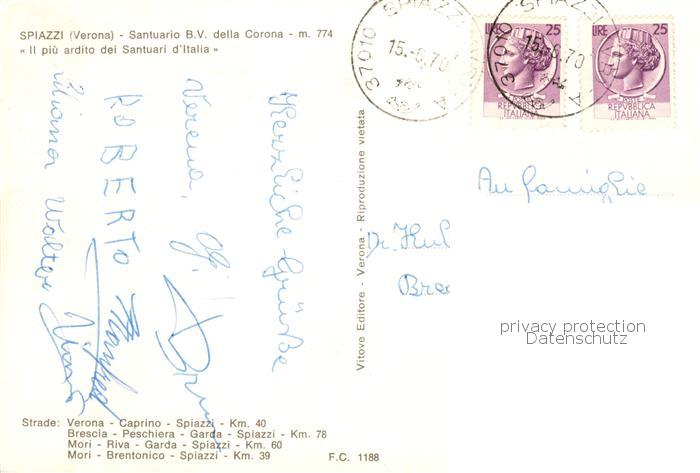 SPIAZZI (Verona) - Santuario B.V. della Corona - m. 774
« Il più ardito dei Santuari d'Italia »
37010 SPIAZZI
15.-6.70
LIRE 25
POSTE
REPVBBLICA
ITALIANA
37010 SPIAZZI
15.-6.70
LIRE 25
POSTE
REPVBBLICA
ITALIANA
Herzliche Grüße
Verena
ROBERTO Manfred
Liliana Walter
Vitove Editore - Verona - Riproduzione vietata
An Famiglie
Dr.
privacy protection
Datenschutz
Strade: Verona - Caprino - Spiazzi - Km. 40
Brescia - Peschiera - Garda - Spiazzi - Km. 78
Mori - Riva - Garda - Spiazzi - Km. 60
Mori - Brentonico - Spiazzi - Km. 39
F.C. 1188